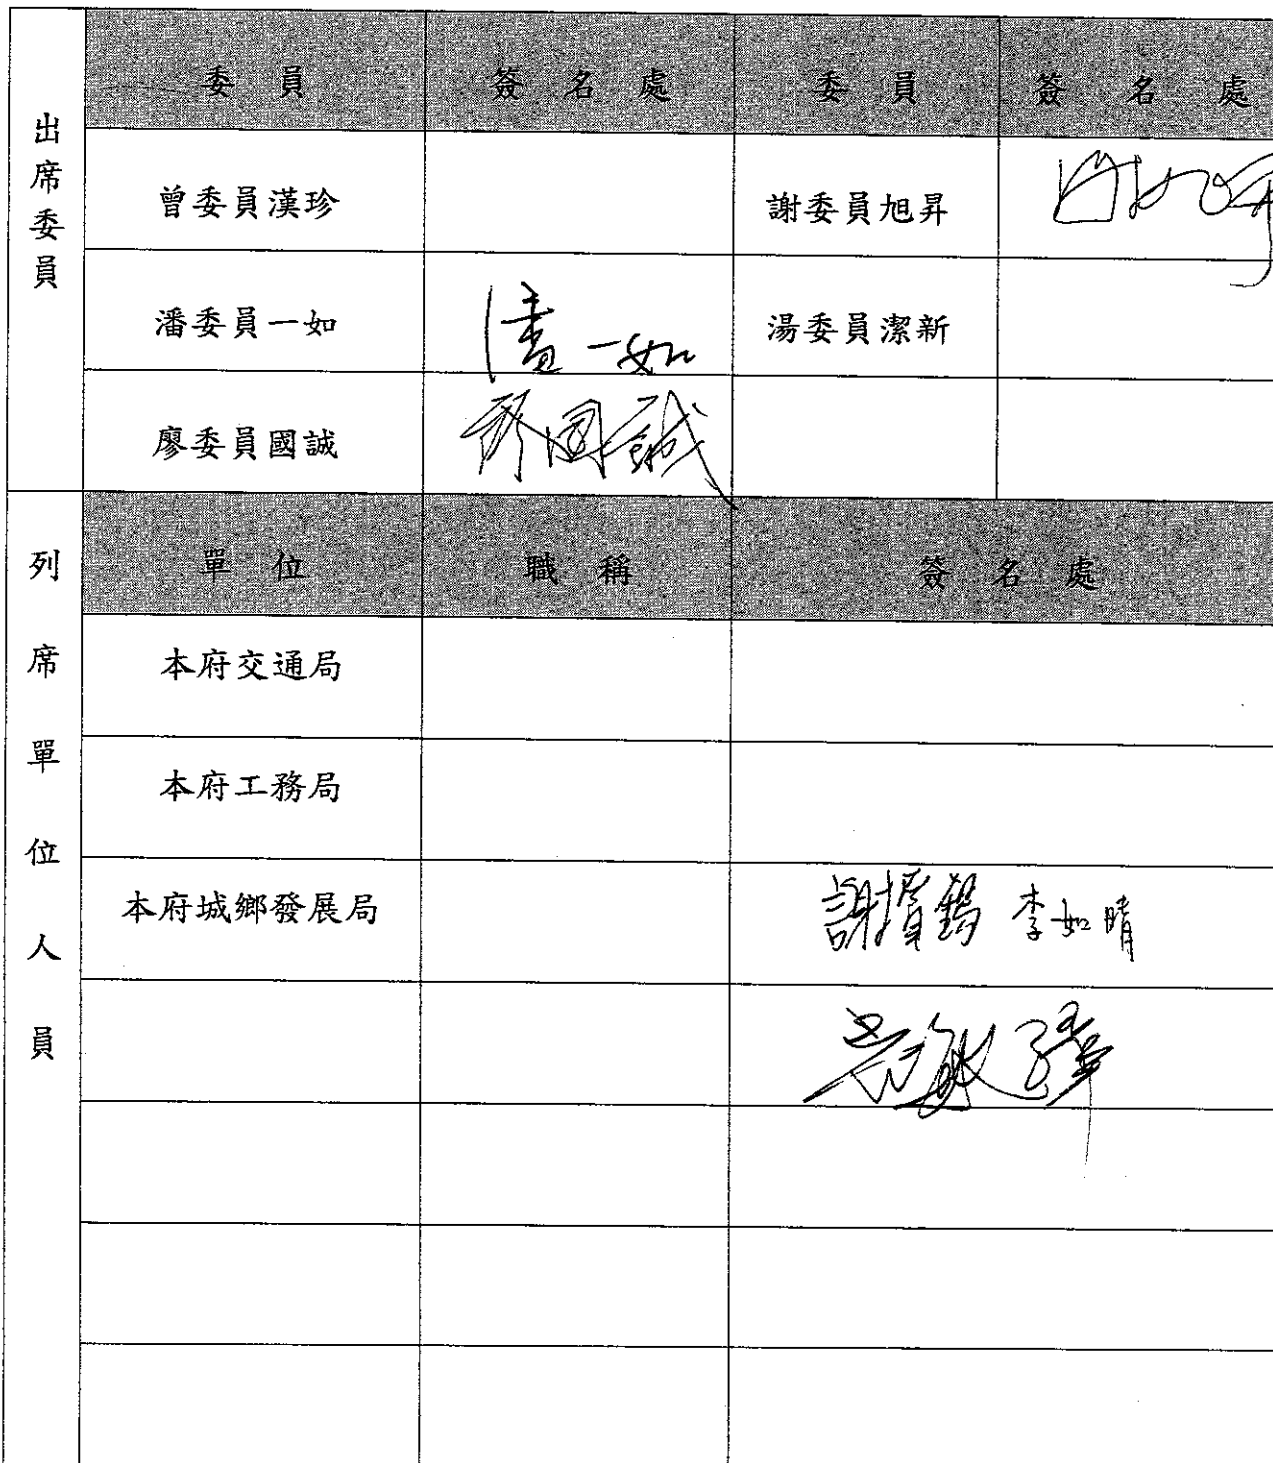 出席委員
委員 簽名處 委員 簽名處
曾委員漢珍 謝委員旭昇
潘委員一如 潘一如 湯委員潔新
廖委員國誠 廖國誠
列席單位人員
單位 職稱 簽名處
本府交通局
本府工務局
本府城鄉發展局 李如晴